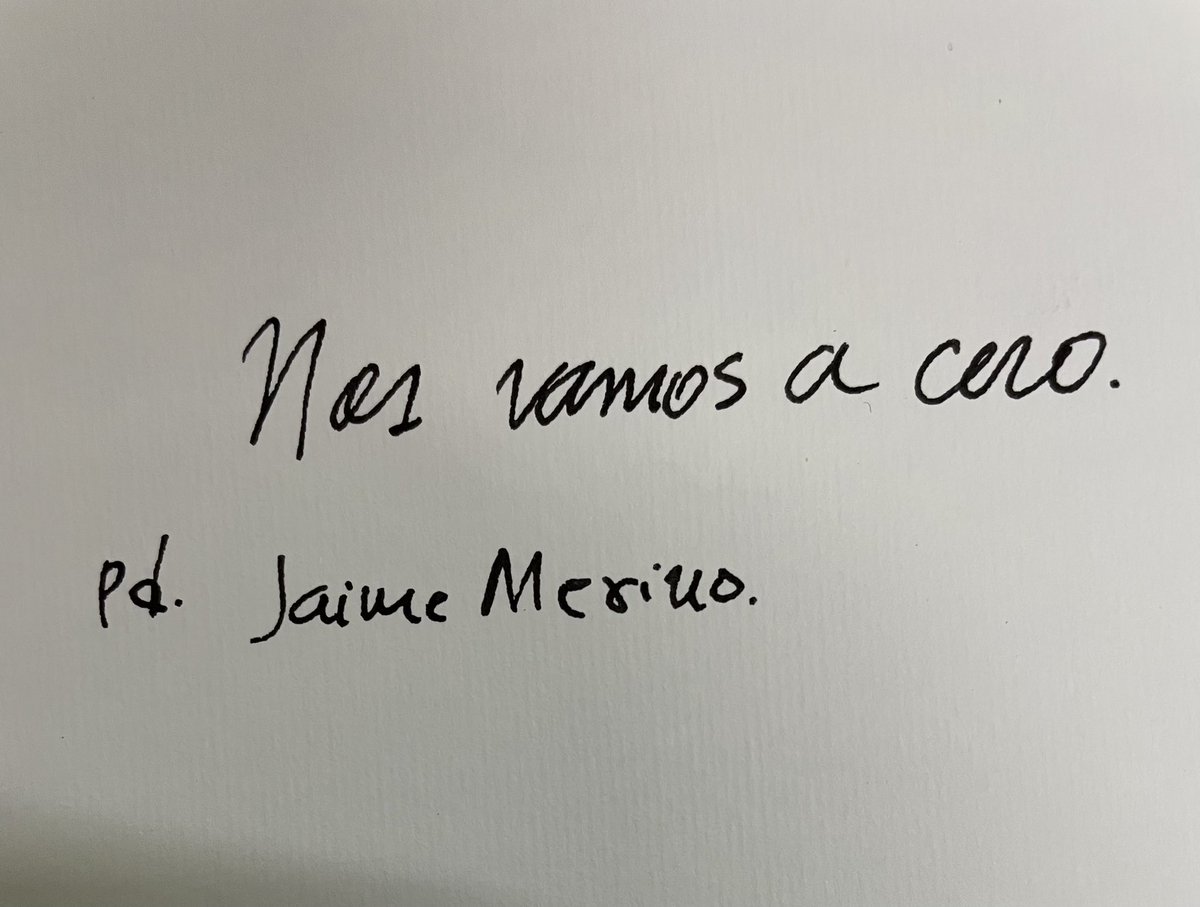 Nos vamos a cero.
pd. Jaime Merino.